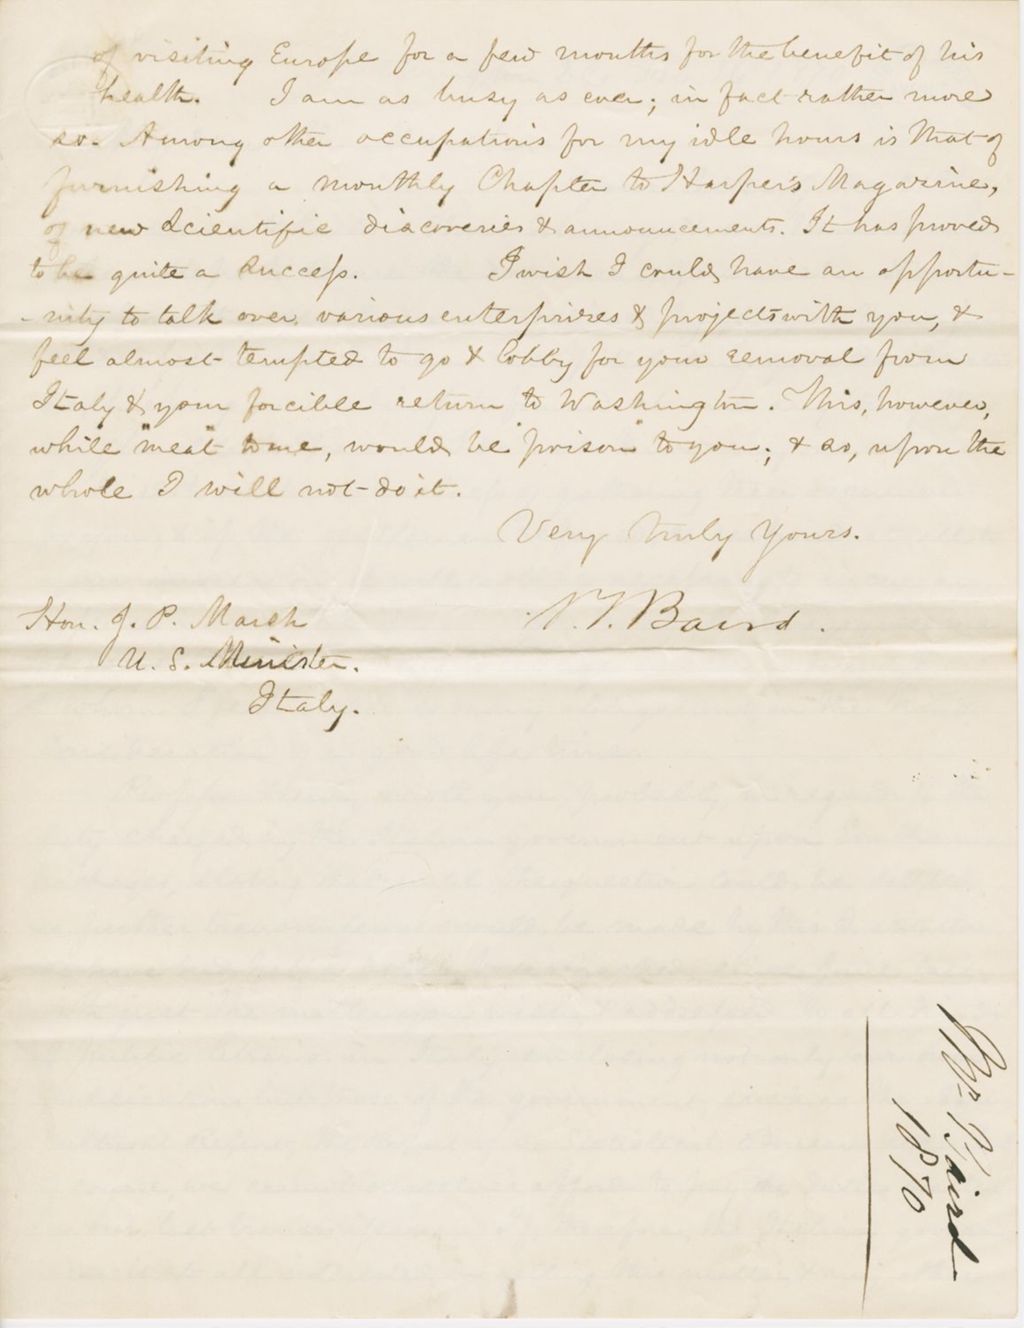 of visiting Europe for a few months for the benefit of his
health. I am as busy as ever; in fact rather more
so. Among other occupations for my idle hours is that of
furnishing a monthly Chapter to Harper's Magazine,
of new Scientific discoveries & announcements. It has proved
to be quite a success. I wish I could have an opportu-
-nity to talk over various enterprizes & projects with you, &
feel almost tempted to go & lobby for your removal from
Italy & your forcible return to Washington. This, however,
while "meat" to me, would be "poison" to you; & so, upon the
whole I will not do it.
Very truly Yours.
S. F. Baird.
Hon. G. P. Marsh
U. S. Minister.
Italy.
Baird
1870